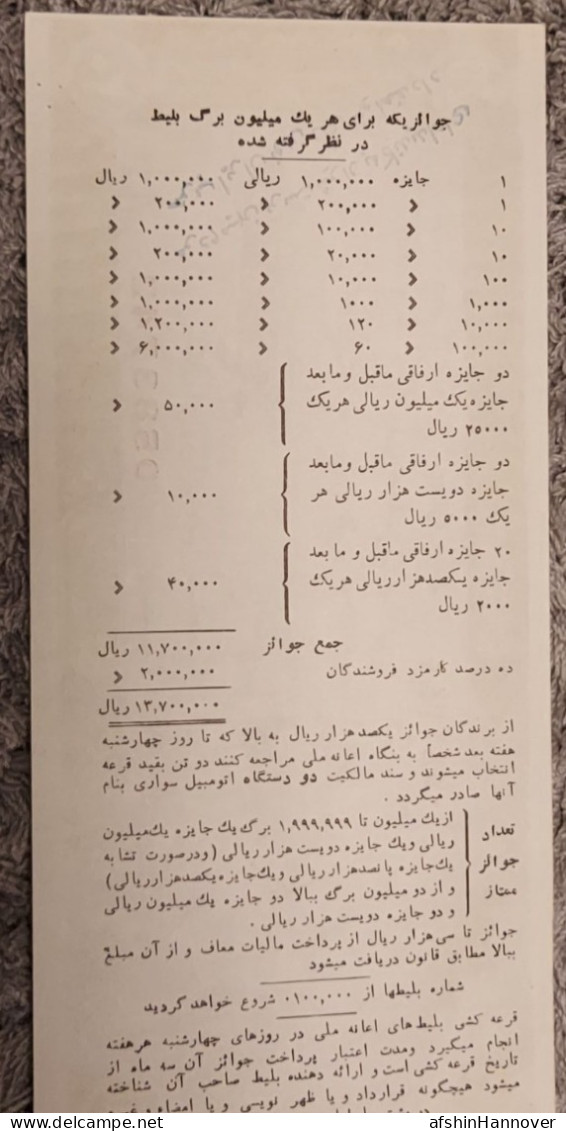 جوائزیکه برای هر یك میلیون برگ بلیط
در نظر گرفته شده
۱ جایزه ۱,۰۰۰,۰۰۰ ریالی ۱,۰۰۰,۰۰۰ ریال
۱ » ۲۰۰,۰۰۰ » ۲۰۰,۰۰۰ »
۱۰ » ۱۰۰,۰۰۰ » ۱,۰۰۰,۰۰۰ »
۱۰ » ۲۰,۰۰۰ » ۲۰۰,۰۰۰ »
۱۰۰ » ۱۰,۰۰۰ » ۱,۰۰۰,۰۰۰ »
۱,۰۰۰ » ۱۰۰۰ » ۱,۰۰۰,۰۰۰ »
۱۰,۰۰۰ » ۱۲۰ » ۱,۲۰۰,۰۰۰ »
۱۰۰,۰۰۰ » ۶۰ » ۶,۰۰۰,۰۰۰ »
دو جایزه ارفاقی ماقبل و مابعد
جایزه یك میلیون ریالی هر یك
۲۵۰۰۰ ریال
۵۰,۰۰۰ »
دو جایزه ارفاقی ماقبل و مابعد
جایزه دویست هزار ریالی هر
یك ۵۰۰۰ ریال
۱۰,۰۰۰ »
۲۰ جایزه ارفاقی ماقبل و ما بعد
جایزه یکصدهزارریالی هر یك
۲۰۰۰ ریال
۴۰,۰۰۰ »
جمع جوائز ۱۱,۷۰۰,۰۰۰ ریال
ده درصد کارمزد فروشندگان ۲,۰۰۰,۰۰۰ »
۱۳,۷۰۰,۰۰۰ ریال
از برندگان جوائز یکصد هزار ریال به بالا که تا روز چهارشنبه
هفته بعد شخصاً به بنگاه اعانه ملی مراجعه کنند دو تن بقید قرعه
انتخاب میشوند و سند مالکیت دو دستگاه اتومبیل سواری بنام
آنها صادر میگردد .
تعداد
جوائز
ممتاز
از یك میلیون تا ۱,۹۹۹,۹۹۹ برگ یك جایزه یك میلیون
ریالی و یك جایزه دویست هزار ریالی ( و درصورت تشابه
یك جایزه پانصدهزارریالی و یك جایزه یکصدهزارریالی)
و از دو میلیون برگ ببالا دو جایزه یك میلیون ریالی
و دو جایزه دویست هزار ریالی .
جوائز تا سی هزار ریال از پرداخت مالیات معاف و از آن مبلغ
ببالا مطابق قانون دریافت میشود
شماره بلیطها از ۰۱۰۰,۰۰۰ شروع خواهد گردید
قرعه کشی بلیط های اعانه ملی در روزهای چهارشنبه هر هفته
انجام میگیرد و مدت اعتبار پرداخت جوائز آن سه ماه از
تاریخ قرعه کشی است و ارائه دهنده بلیط صاحب آن شناخته
میشود هیچگونه قرارداد و یا ظهر نویسی و یا امضاء و غیره
afshinHannover